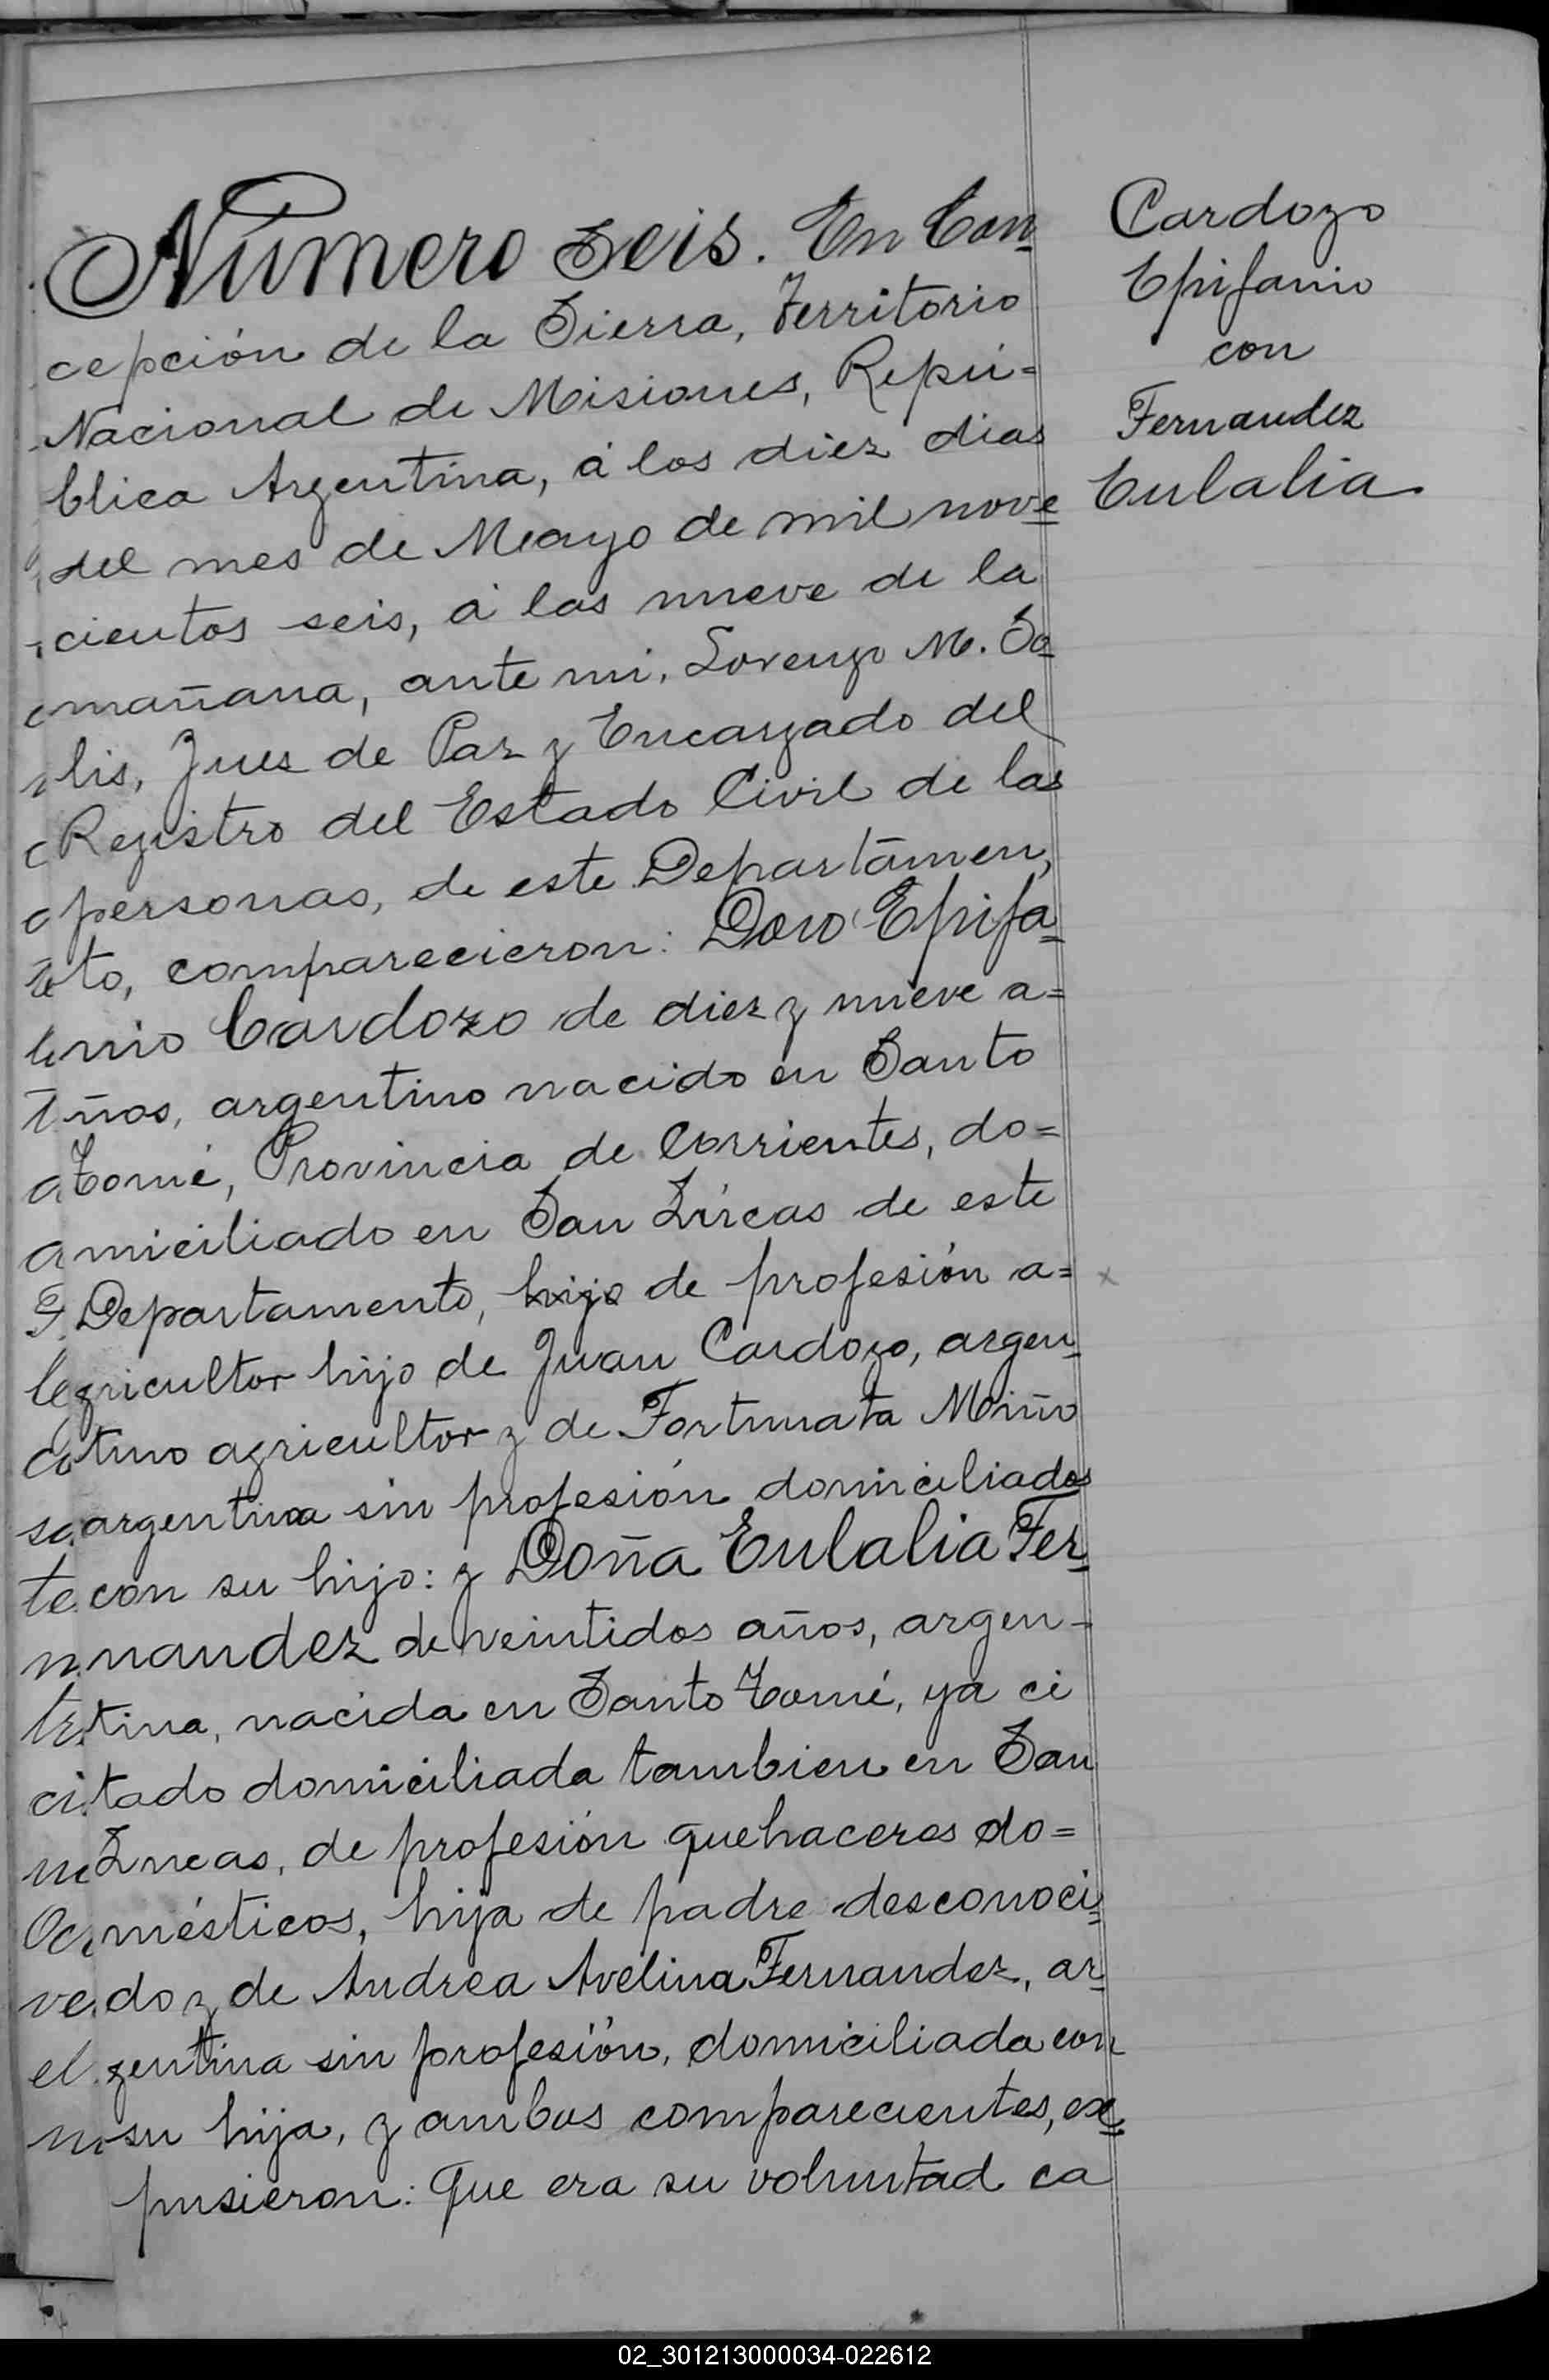 Número Seis. En Con
cepción de la Sierra, Territorio
Nacional de Misiones, Repú=
blica Argentina, á los diez dias
del mes de Mayo de mil nove
cientos seis, á las nueve de la
mañana, ante mi, Lorenzo M. So
lis, Juez de Paz y Encargado del
Registro del Estado Civil de las
personas, de este Departamen,
to, comparecieron: Don Epifa
nio Cardozo de diez y nueve a=
ños, argentino nacido en Santo
Tomé, Provincia de Corrientes, do=
miciliado en San Lúcas de este
Departamento, hijo de profesión a=
gricultor hijo de Juan Cardozo, argen
tino agricultor y de Fortunata Miño
argentina sin profesión domiciliados
con su hijo: y Doña Eulalia Fer
nandez de veintidos años, argen-
tina, nacida en Santo Tomé, ya ci
tado domiciliada tambien en San
Lucas, de profesión quehaceres do=
mésticos, hija de padre desconoci
do y de Andrea Avelina Fernandez, ar
gentina sin profesión, domiciliada con
su hija, y ambos comparecientes, ex
pusieron: Que era su voluntad ca
Cardozo
Epifanio
con
Fernandez
Eulalia
02_301213000034-022612